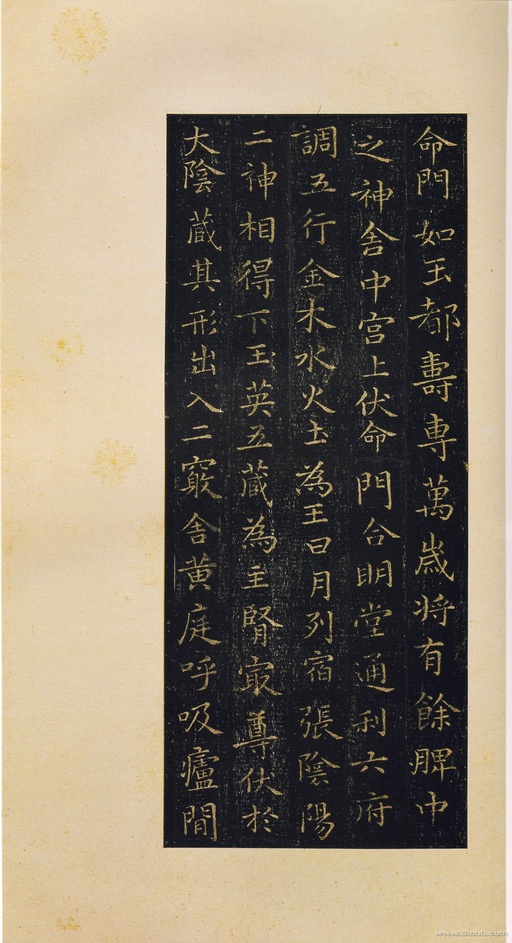 命門如玉都壽專萬歲将有餘脾中
之神舍中宫上伏命門合明堂通利六府
調五行金木水火土為王日月列宿張陰陽
二神相得下玉英五藏為主腎冣尊伏於
大陰藏其形出入二竅舍黄庭呼吸廬間